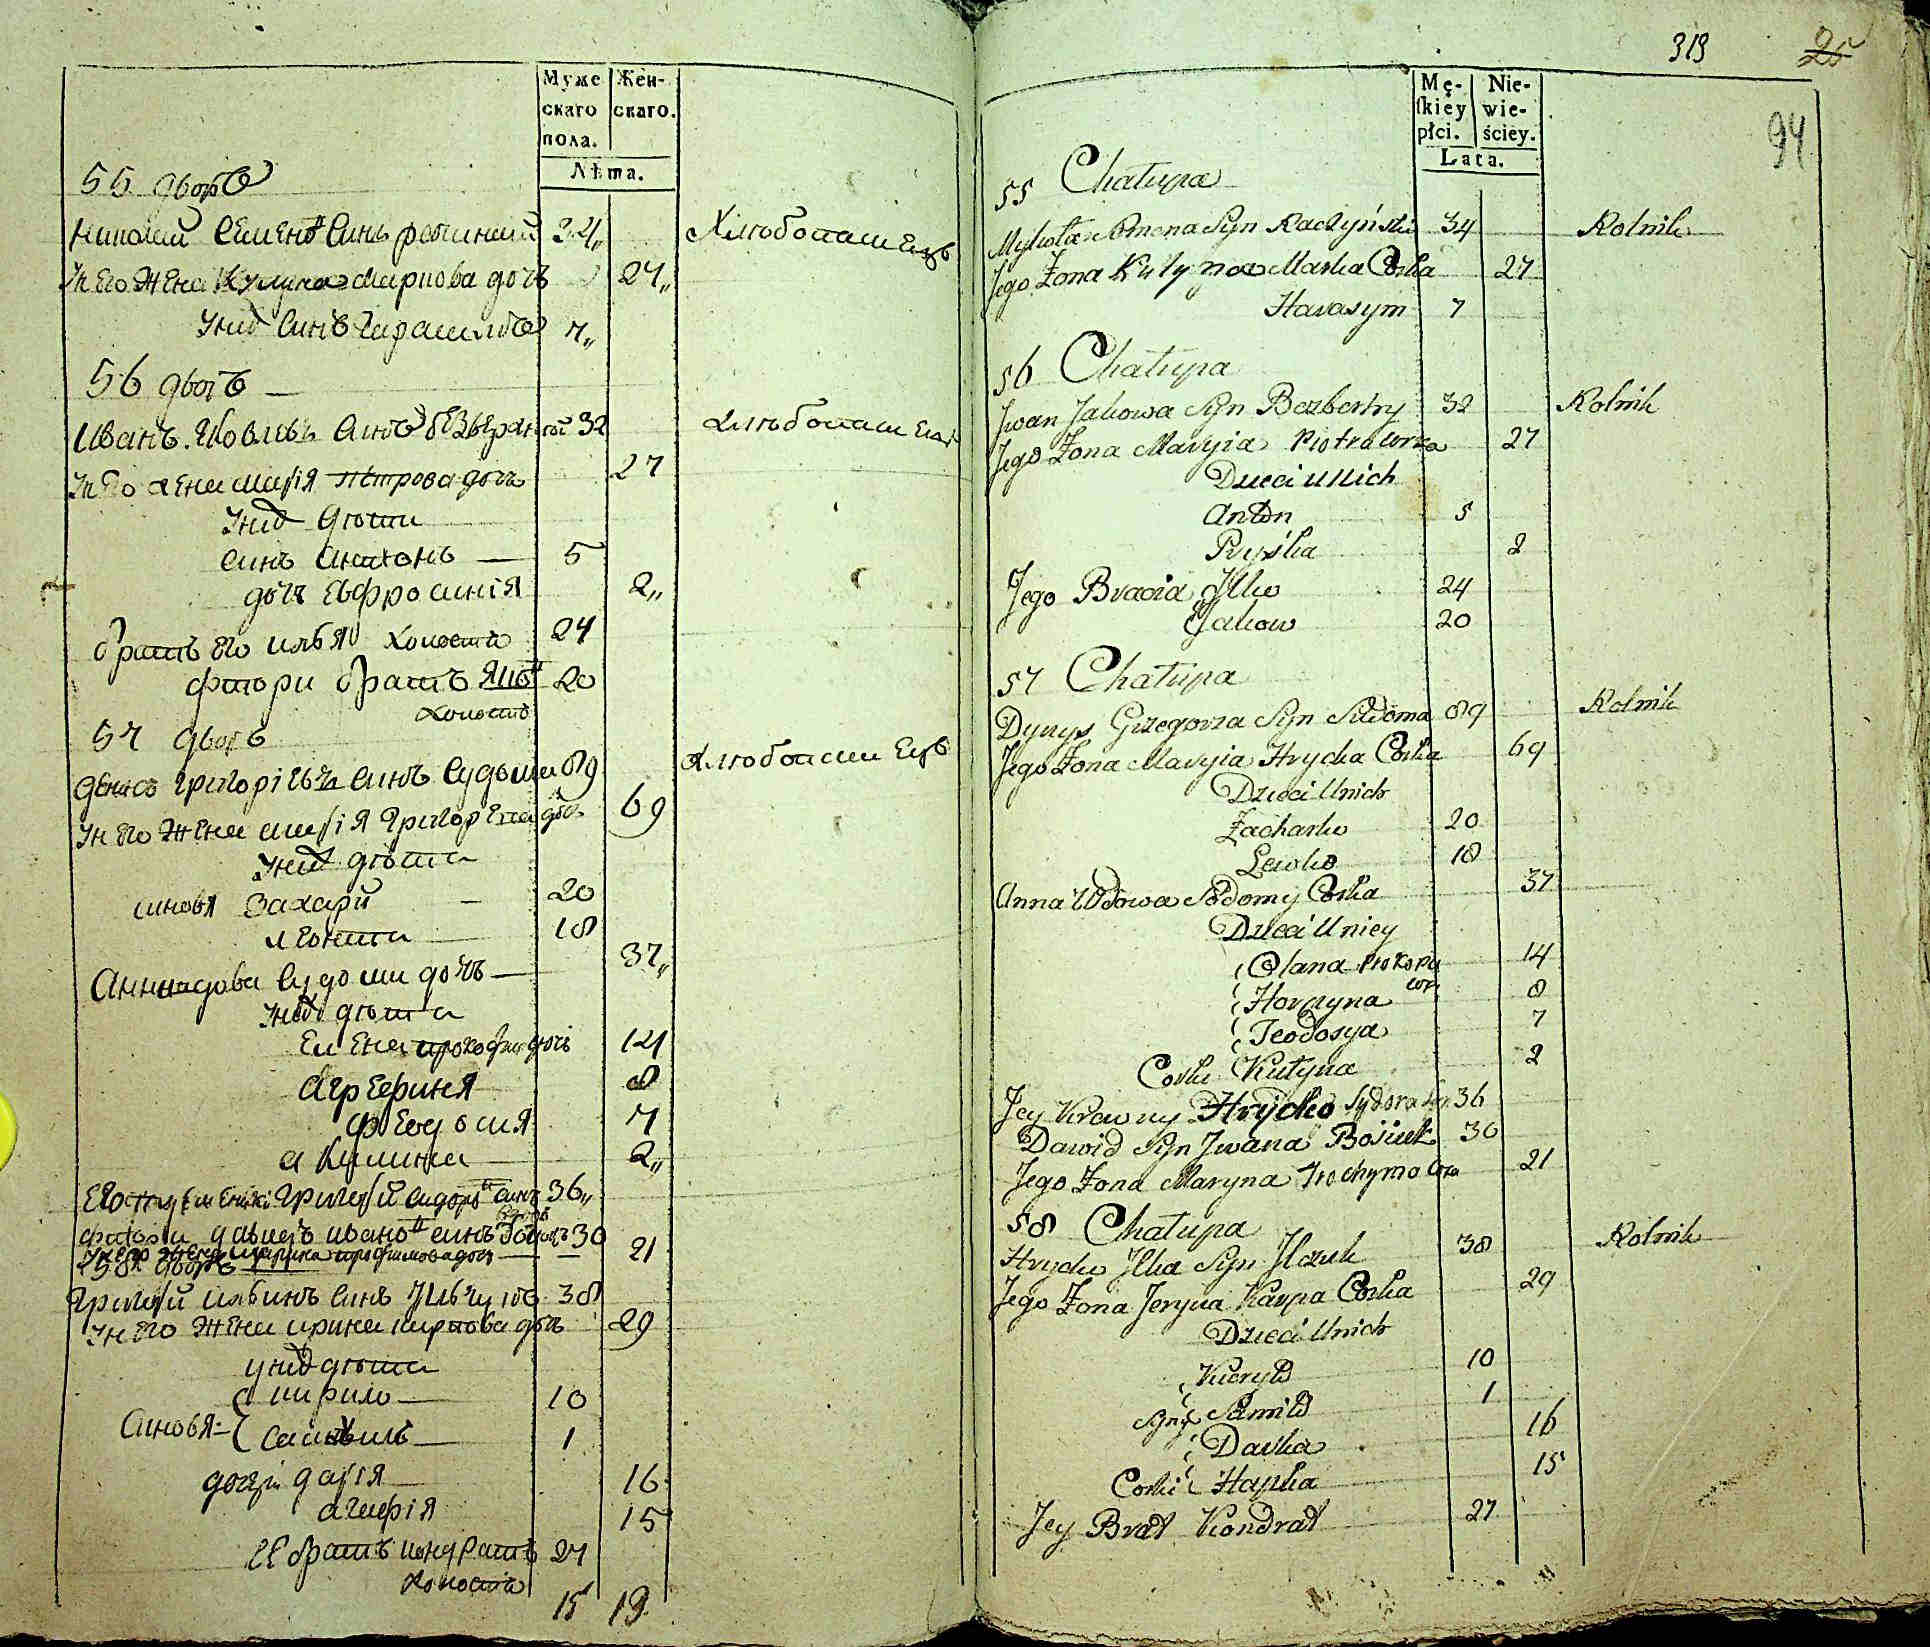 Муже
скаго
пола.
Жен-
скаго.
Лѣта.
55 дворъ
Николай Семенов Синъ 34
Хлюбопашецъ
у него жена Кулина Маркова дочъ 27
у них Синъ Гарасимъ 7
56 дворъ
Иванъ Яковлевъ Синъ 32
Хлюбопашец
у его жена Марiя Петрова дочъ 27
у них дѣти
Синъ Антонъ 5
дочъ Евфросинiя 2
братъ его илья холостъ 24
фтори братъ Яков 20
холостъ
57 дворъ
Денисъ Григорiевъ Синъ Судома 89
Хлюбопашецъ
у его жена Марiя Григориева доч 69
у них дѣти
Синовя Захарiй 20
Леонти 18
Анна вдова Судоми дочъ 37
у ней дѣти
Елена прокофия дочъ 14
Агрефина 8
Феодосия 7
Акилина 2
Григорiй Сидоров Синъ 36
фтори давидъ иванов синъ 30
у его жена Марина трофимова дочъ 21
58 дворъ
Григорiй ильинъ Синъ Ильчукъ 38
у него жена ирина карпова дочъ 29
у них дѣти
Синовя кирило 10
Самуиль 1
дочери дарiя 16
агафiя 15
ее братъ кондратъ 27
холостъ
15 19
313 25
94
Mę-
skiey
płci.
Nie-
wie-
ściey.
Lata.
55 Chałupa
Mykoła Syn Raczyński 34 Rolnik
Jego Żona Kulyna Marka Corka 27
Harasym 7
56 Chałupa
Jwan Jakowa Syn Bezbertny 32 Rolnik
Jego Żona Maryia Piotra corka 27
Dzieci u Nich
Anton 5
Pryśka 2
Jego Bracia Jlko 24
Jakow 20
57 Chałupa
Dynys Grzegorza Syn Sudoma 89 Rolnik
Jego Żona Maryia Hrycka Corka 69
Dzieci u nich
Zacharko 20
Lewko 18
Anna Wdowa Sodomy Corka 37
Dzieci u niey
Olana Prokopa cor. 14
Horpyna 8
Teodosya 7
Corki Kulyna 2
Jey Krewny Hryćko Sydora Syn 36
Dawid Syn Jwana 30
Jego Żona Maryna Trochyma Cora 21
58 Chałupa
Hrycko Jlka Syn Jlczuk 38 Rolnik
Jego Żona Jeryna Karpa Corka 29
Dzieci u nich
Kieryło 10
Syny Samiło 1
Darka 16
Corki Hapka 15
Jey Brat Kondrat 27